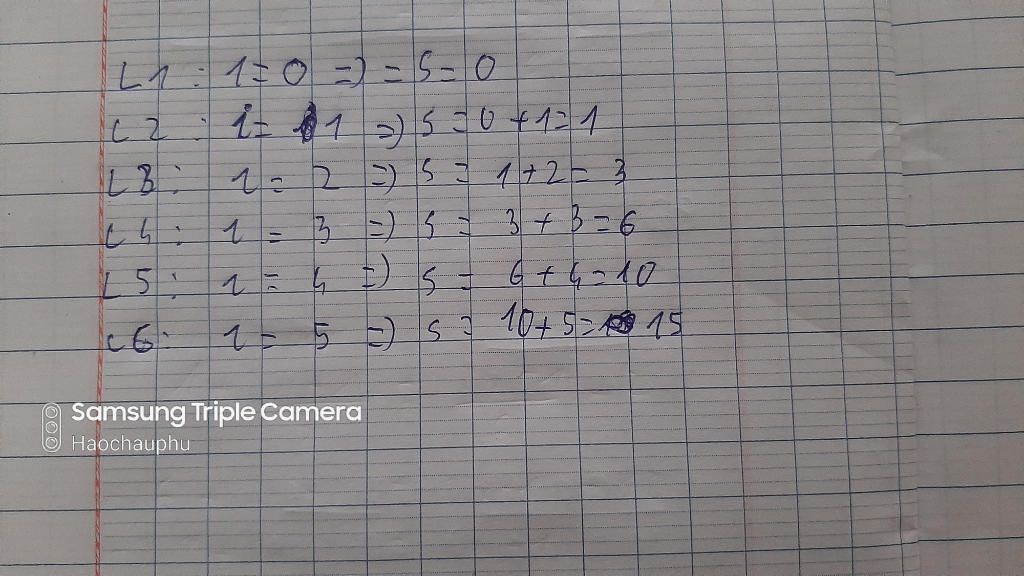 L1 : 1=0 => = S= 0
L2 : i= 1 => S = 0+1=1
L3 : i = 2 => S = 1+2= 3
L4 : i = 3 => S = 3+3=6
L5 : i = 4 => S = 6+4=10
L6 : i = 5 => S = 10+5= 15
Samsung Triple Camera
Haochauphu